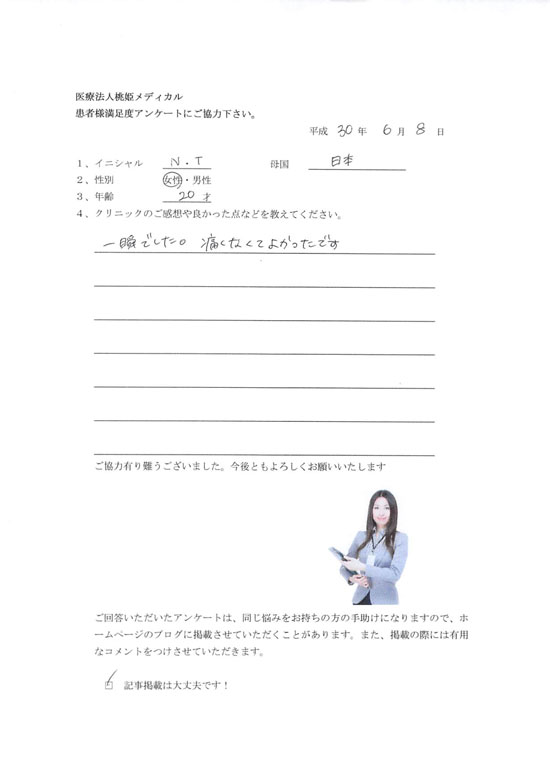 医療法人桃姫メディカル
患者様満足度アンケートにご協力下さい。
平成 30 年 6 月 8 日
1、イニシャル N.T 母国 日本
2、性別 女性・男性
3、年齢 20 才
4、クリニックのご感想や良かった点などを教えてください。
一瞬でした。痛くなくてよかったです
ご協力有り難うございました。今後ともよろしくお願いいたします
ご回答いただいたアンケートは、同じ悩みをお持ちの方の手助けになりますので、ホ
ームページのブログに掲載させていただくことがあります。また、掲載の際には有用
なコメントをつけさせていただきます。
記事掲載は大丈夫です！